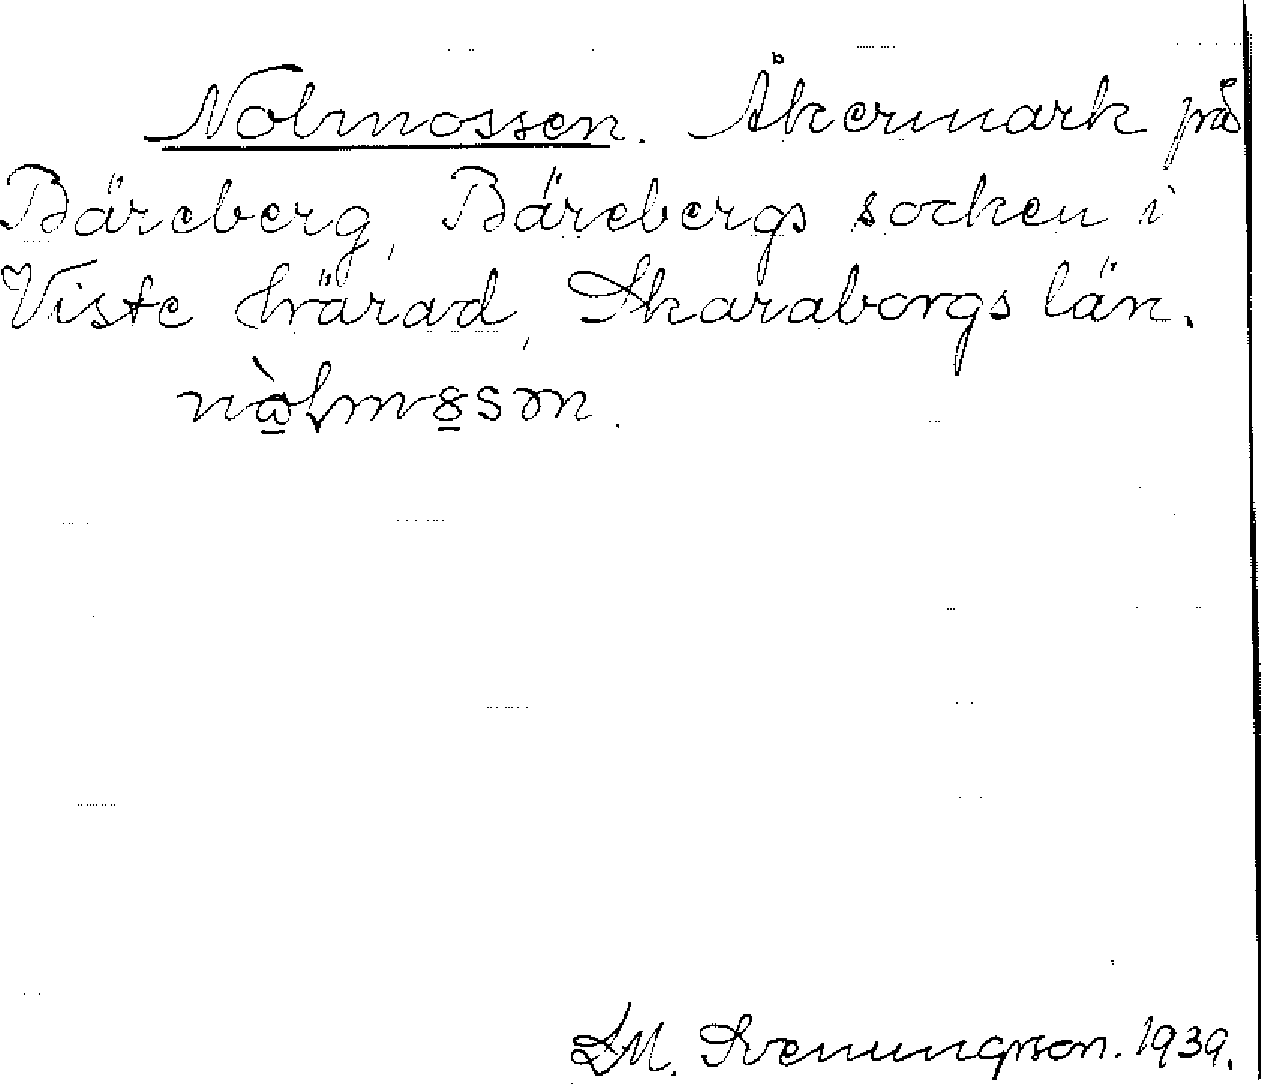 Nolmossen. Åkermark på
Bäreberg, Bärebergs socken i
Viste härad, Skaraborgs län.
D.M. Svenungson. 1939.